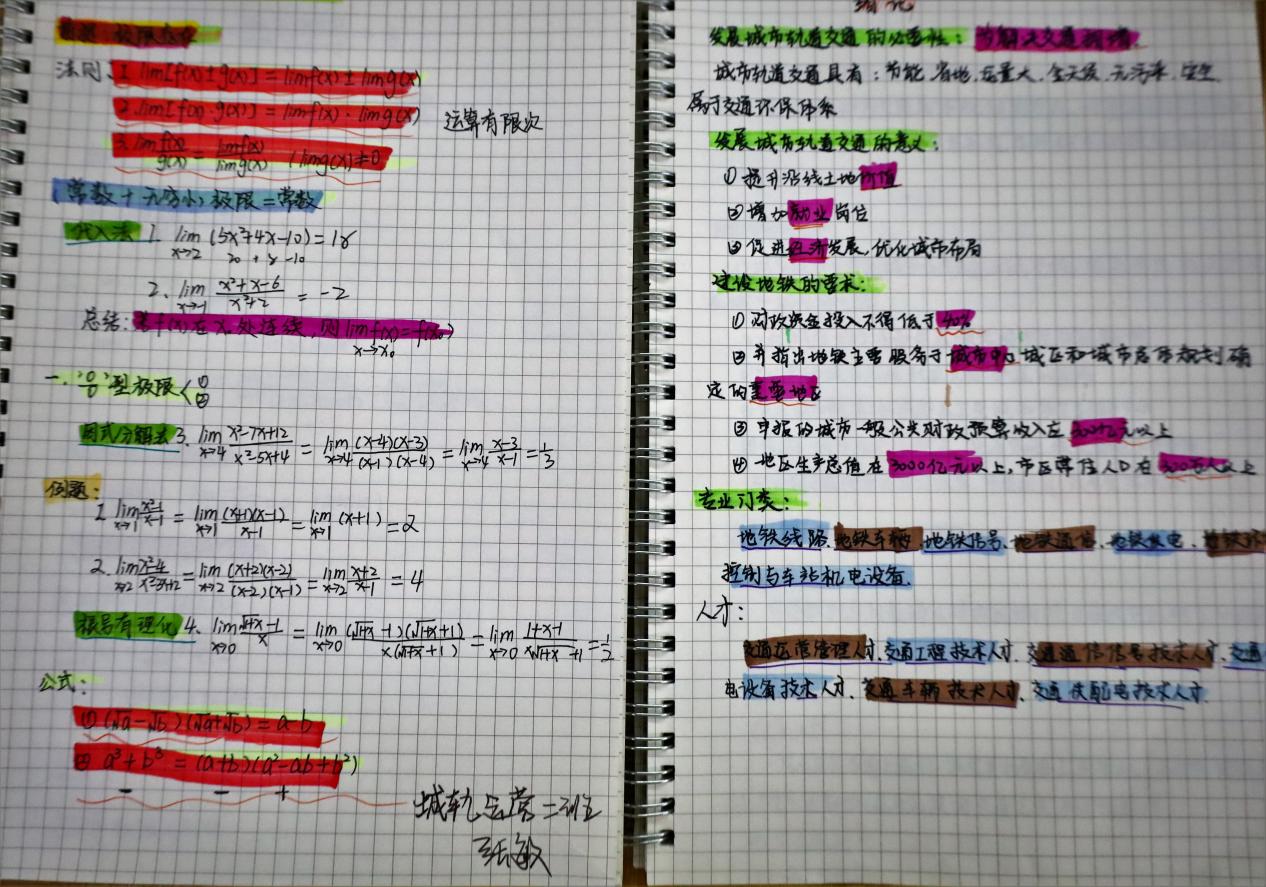 法则: 1. lim[f(x)±g(x)] = limf(x) ± limg(x)
2. lim[f(x)·g(x)] = limf(x) · limg(x) 运算有限次
3. lim f(x)/g(x) = limf(x)/limg(x) (limg(x)≠0)
常数+无穷小极限=常数
代入法 1. lim x→2 (5x²+4x-10) = 18
20 + 8 -10
2. lim x→-1 (x²+x-6)/(x²+2) = -2
总结: 若f(x)在x₀处连续,则 lim x→x₀ f(x) = f(x₀)
一. "0/0"型极限 < ① ②
因式分解法 3. lim x→4 (x²-7x+12)/(x²-5x+4) = lim x→4 (x-4)(x-3)/(x-1)(x-4) = lim x→4 (x-3)/(x-1) = 1/3
例题:
1. lim x→1 (x²-1)/(x-1) = lim x→1 (x+1)(x-1)/(x-1) = lim x→1 (x+1) = 2
2. lim x→2 (x²-4)/(x²-3x+2) = lim x→2 (x+2)(x-2)/(x-2)(x-1) = lim x→2 (x+2)/(x-1) = 4
根号有理化 4. lim x→0 (√1+x -1)/x = lim x→0 (√1+x -1)(√1+x +1)/x(√1+x +1) = lim x→0 (1+x-1)/(x√1+x +1) = 1/2
公式:
① (√a-√b)(√a+√b) = a-b
② a³+b³ = (a+b)(a²-ab+b²)
- - +
城轨运营二班
张敏
发展城市轨道交通的必要性: 为解决交通拥堵.
城市轨道交通具有: 节能、省地、运量大、全天候、无污染、安全
属于交通环保体系
发展城市轨道交通的意义:
① 提升沿线土地价值
② 增加就业岗位
③ 促进经济发展,优化城市布局
建设地铁的要求:
① 财政资金投入不得低于40%
② 并指出地铁主要服务于城市中心城区和城市总体规划确
定的重要地区
③ 申报的城市一般公共财政预算收入应300亿元以上
④ 地区生产总值在3000亿元以上,市区常住人口在300万人以上
专业门类:
地铁线路、地铁车辆、地铁信号、地铁通信、地铁供电、地铁环
控制与车站机电设备.
人才:
交通运营管理人才、交通工程技术人才、交通通信信号技术人才、交通
电设备技术人才、交通车辆技术人才、交通供配电技术人才.